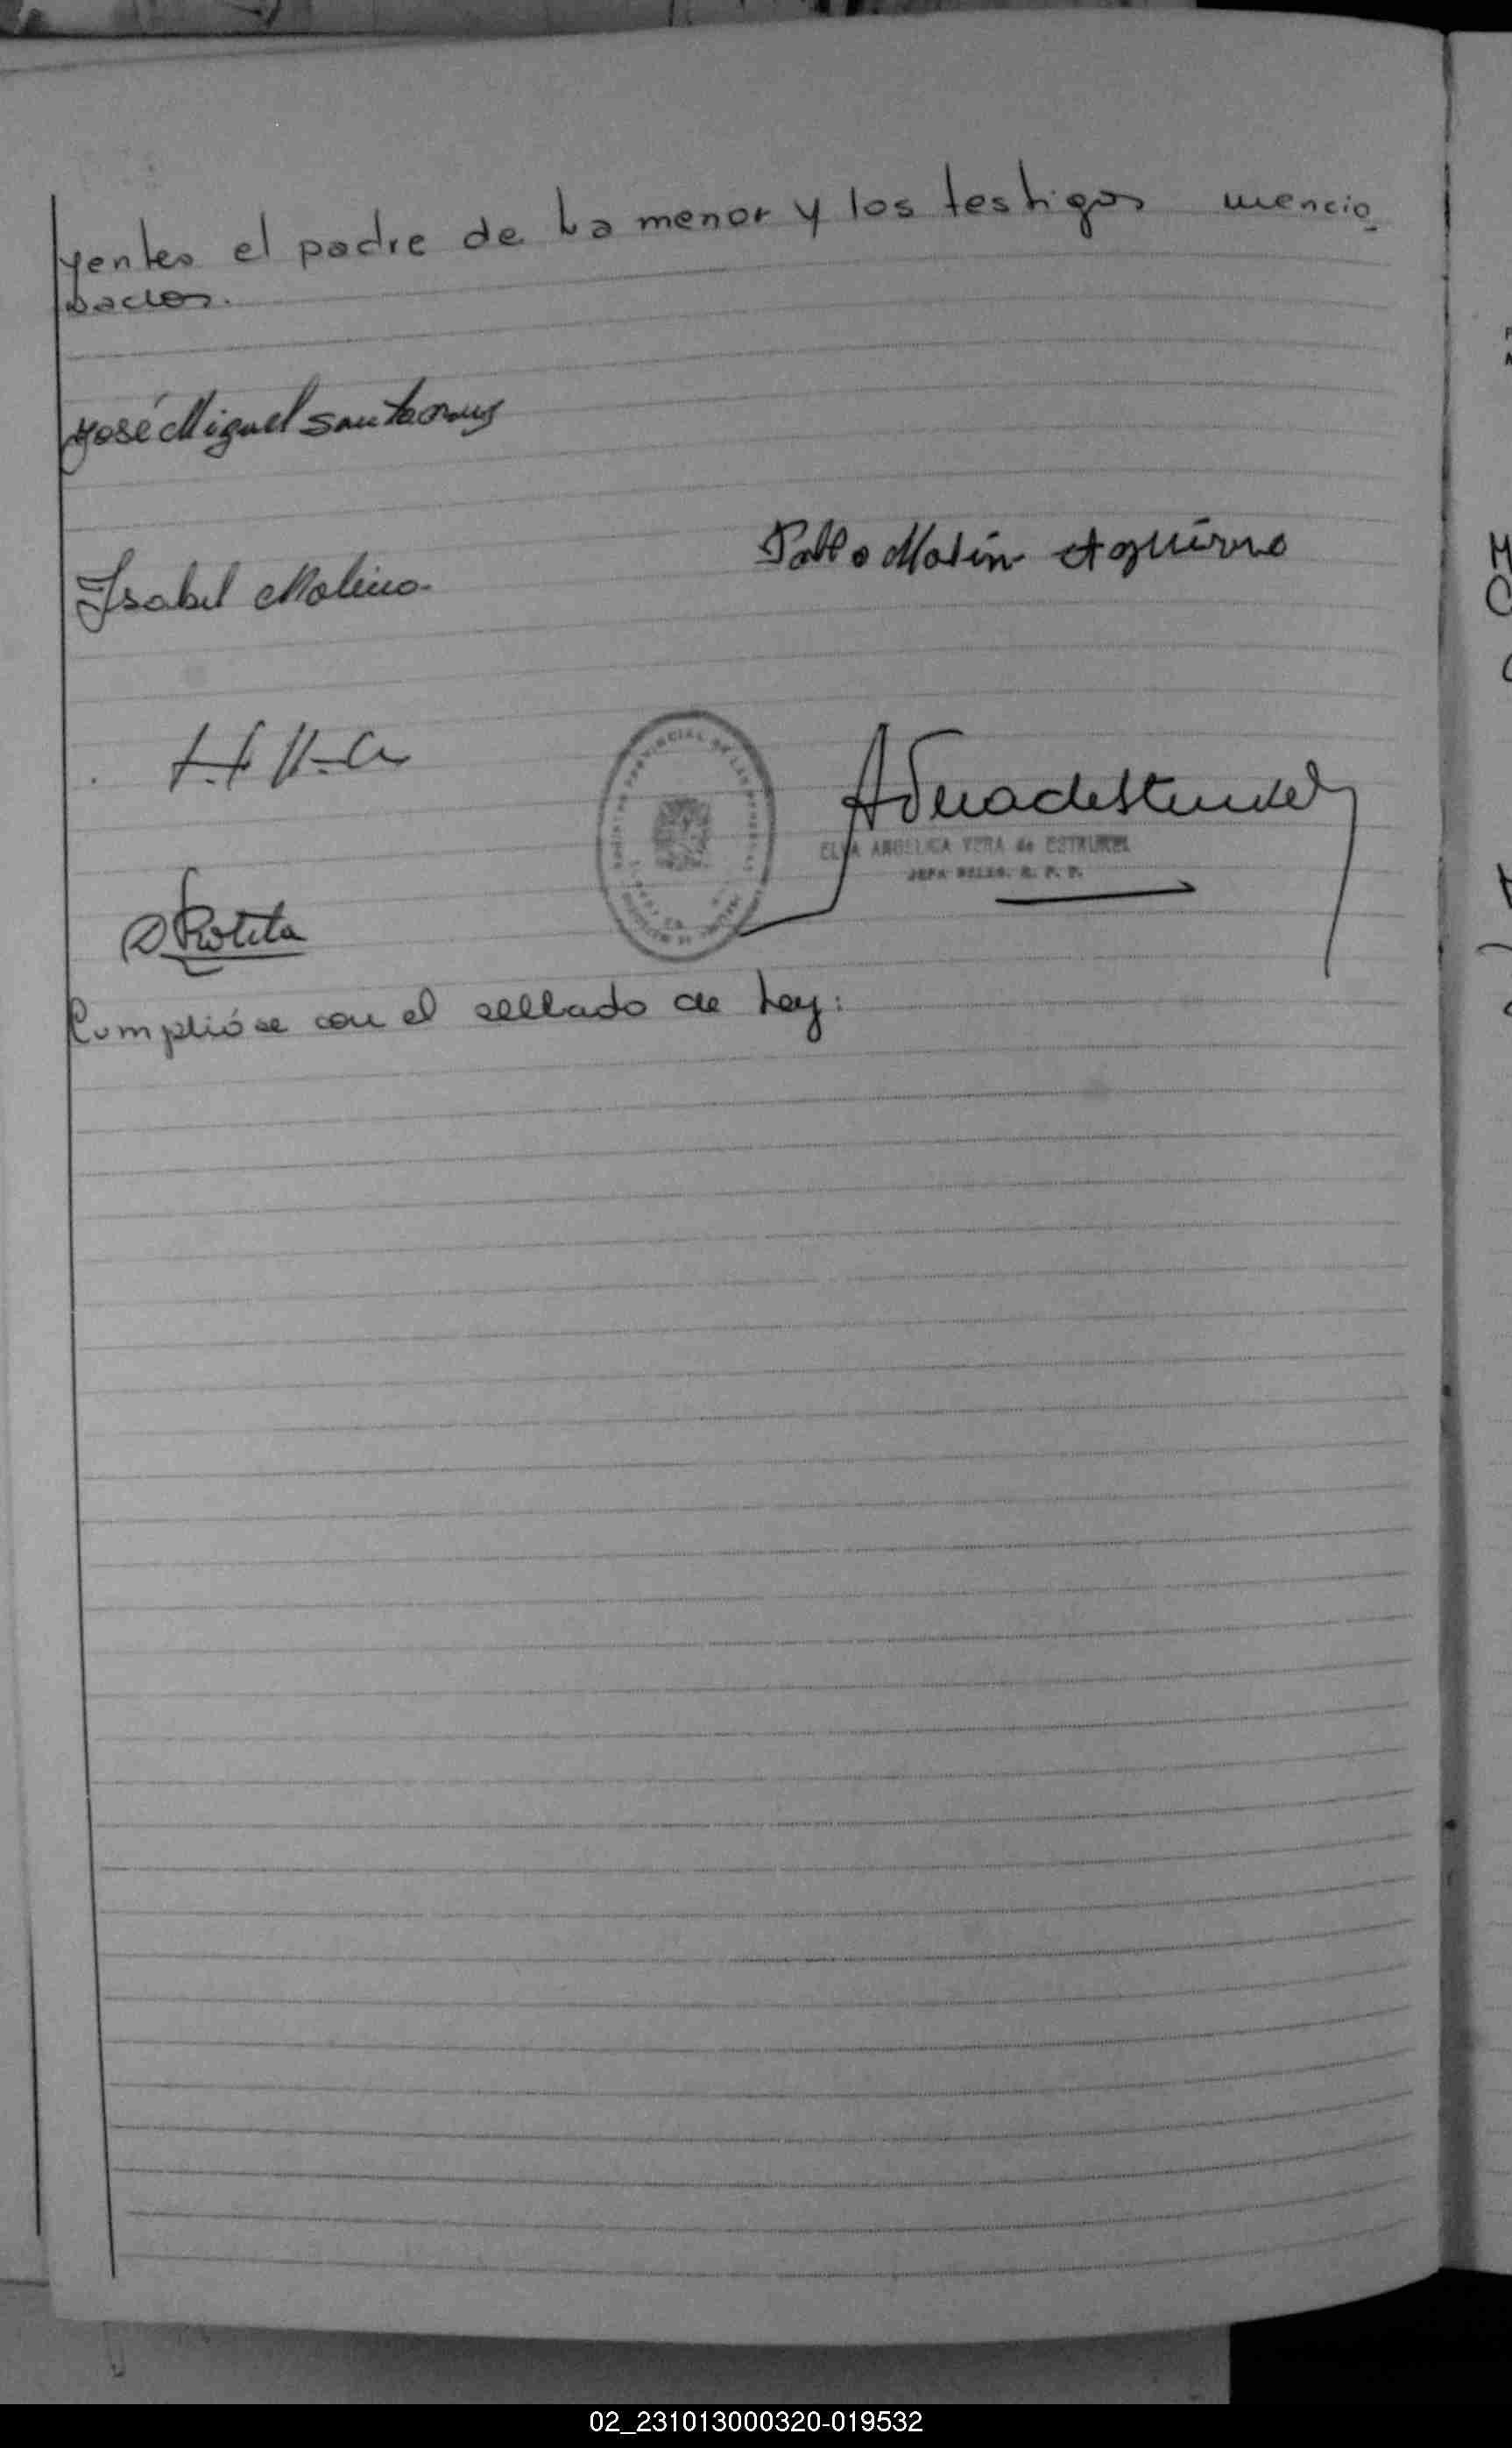 yentes el padre de la menor y los testigos mencio_
nados.
José Miguel
Pablo Marín Aguirre
Isabel Molina.
ELVA ANGELICA VERA de ESTRUBEL
JEFA R. P. P.
Cumplióse con el sellado de Ley:
02_231013000320-019532